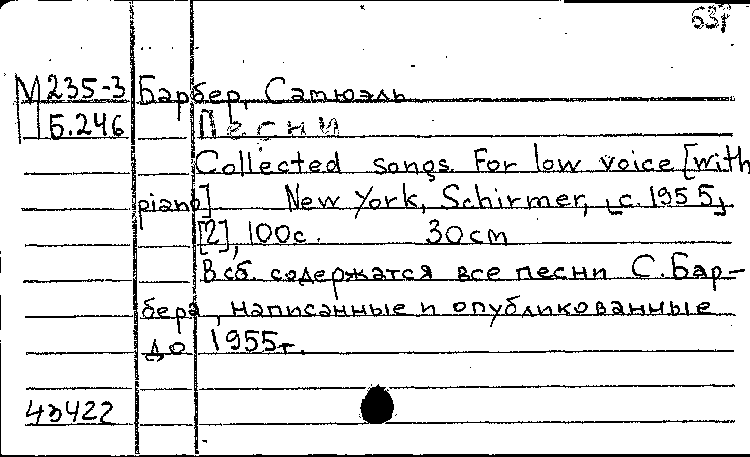 637
М235-3 Барбер, Сэмюэль
Б.246 Песни
Collected songs. For low voice [with
piano] New York, Schirmer, [c. 1955]
[2], 100с. 30cm
В сб. содержатся все песни С. Бар-
бера, написанные и опубликованные
до 1955г.
43422